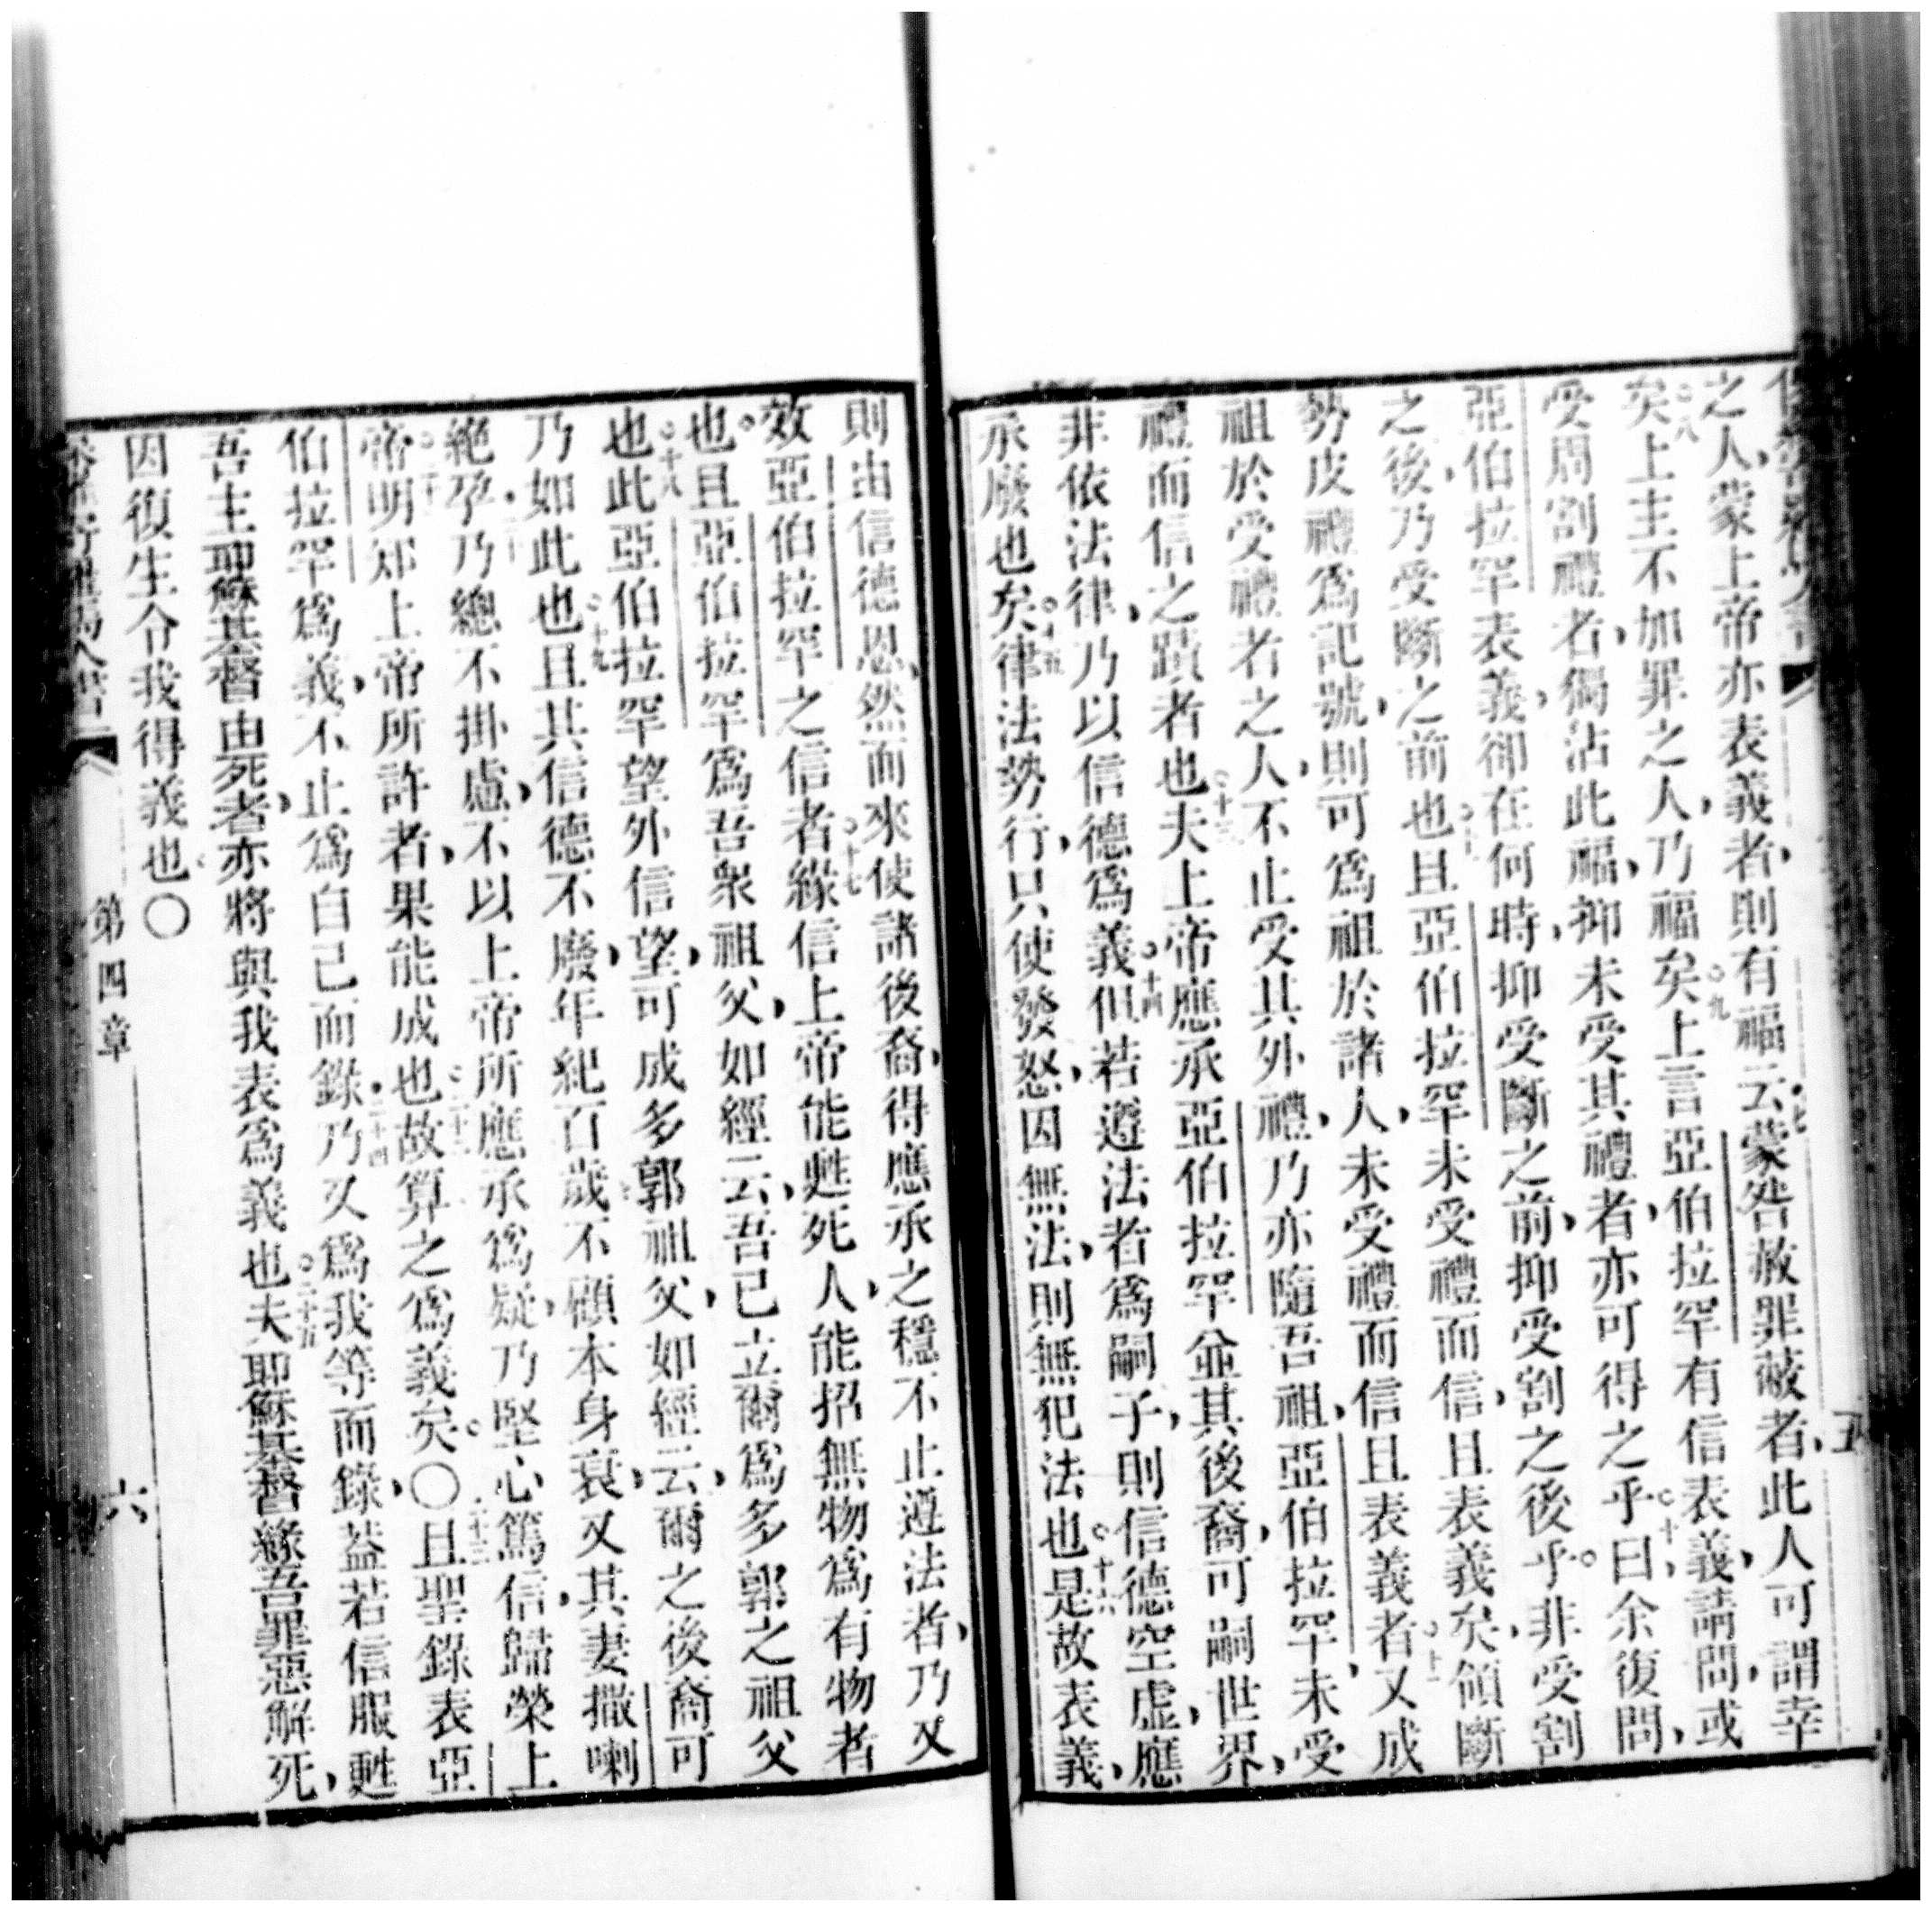 之人蒙上帝亦表義者則有福云○七蒙咎赦罪蔽者此人可謂幸
矣○八上主不加罪之人乃福矣○九上言亞伯拉罕有信表義請問或
受周割禮者獨沾此福抑未受其禮者亦可得之乎○十曰余復問
亞伯拉罕表義卻在何時抑受斷之前抑受割之後乎非受割
之後乃受斷之前也○十一且亞伯拉罕未受禮而信且表義矣領斷
勢皮禮爲記號則可爲祖於諸人未受禮而信且表義者○十二又成
祖於受禮者之人不止受其外禮乃亦隨吾祖亞伯拉罕未受
禮而信之蹟者也○十三夫上帝應承亞伯拉罕並其後裔可嗣世界
非依法律乃以信德爲義○十四但若遵法者爲嗣子則信德空虛應
承廢也矣○十五律法勢行只使發怒因無法則無犯法也○十六是故表義
則由信德恩然而來使諸後裔得應承之穩不止遵法者乃又
效亞伯拉罕之信者○十七緣信上帝能甦死人能招無物爲有物者
也且亞伯拉罕爲吾衆祖父如經云吾已立爾爲多郭之祖父
也○十八此亞伯拉罕望外信望可成多郭祖父如經云爾之後裔可
乃如此也○十九且其信德不廢年紀百歲不顧本身衰又其妻撒喇
絕孕○二十乃總不掛慮不以上帝所應承爲疑乃堅心篤信歸榮上
帝○二十一明知上帝所許者果能成也○二十二故算之爲義矣○二十三且聖錄表亞
伯拉罕爲義不止爲自己而錄○二十四乃又爲我等而錄蓋若信服甦
吾主耶穌基督由死者亦將與我表爲義也○二十五夫耶穌基督緣吾罪惡解死
因復生令我得義也○
第四章
六
五